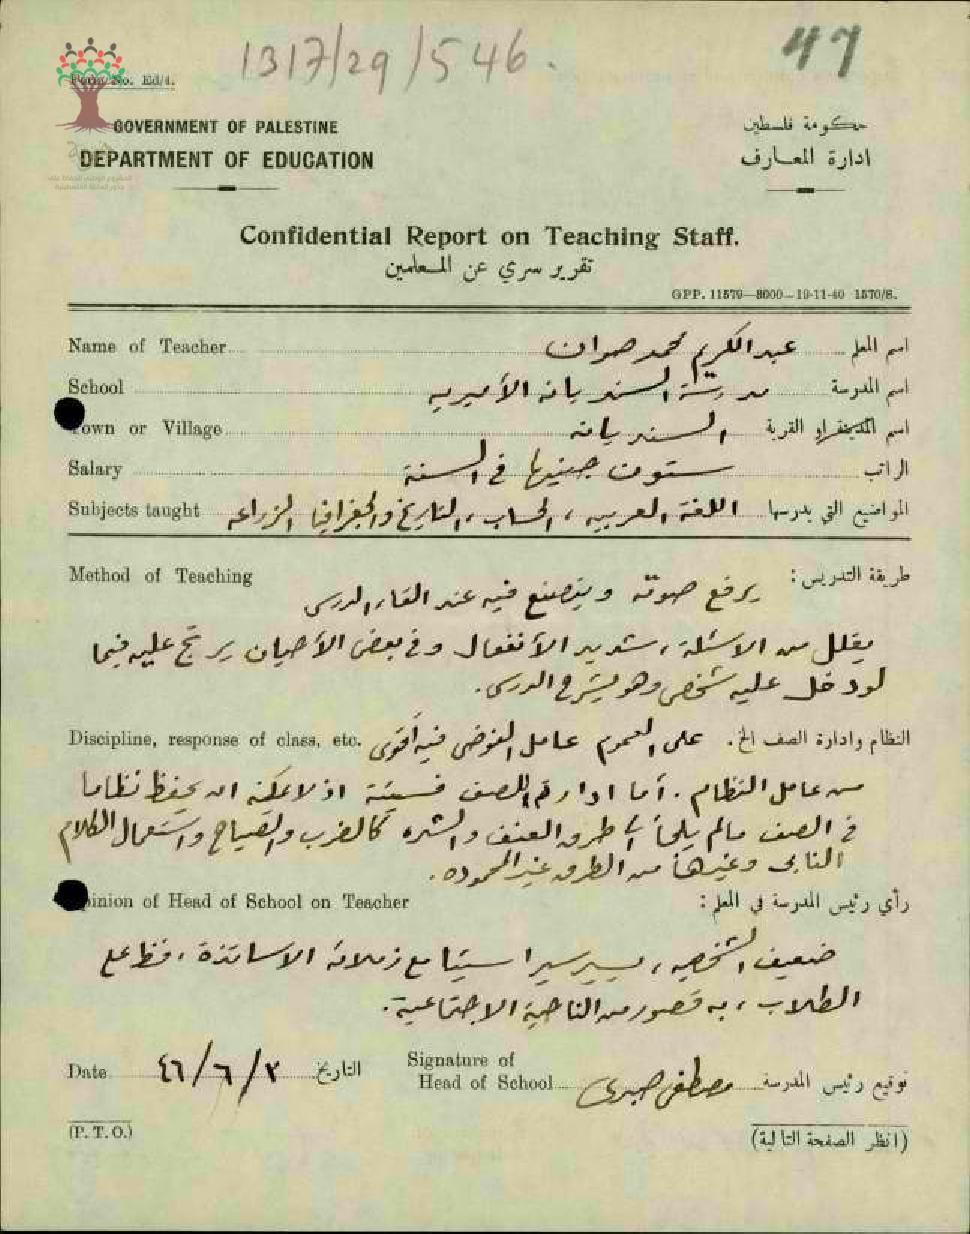 1317/29/546.
47
Form No. Ed/4.
GOVERNMENT OF PALESTINE
حكومة فلسطين
DEPARTMENT OF EDUCATION
ادارة المعارف
Confidential Report on Teaching Staff.
تقرير سري عن المعلمين
GPP. 11579—8000—19-11-40 1570/S.
Name of Teacher عبد الكريم محمد صوان اسم المعلم
School مدرسة السنديانه الأميريه اسم المدرسة
Town or Village السنديانه اسم المدينة او القرية
Salary ستون جنيها في السنة الراتب
Subjects taught اللغة العربيه، الحساب، التاريخ والجغرافيا الزراعه المواضيع التي يدرسها
Method of Teaching طريقة التدريس:
يرفع صوته ويتصنع فيه عند القاء الدرس
يقلل من الاسئلة، شديد الأنفعال وفي بعض الأحيان يرتج عليه فيما
لو دخل عليه شخص وهو يشرح الدرس.
Discipline, response of class, etc. النظام وادارة الصف الخ.
على العموم عامل الفوضى فيه أقوى
من عامل النظام. أما ادارة الصف فسيئة اذ لا يمكنه ان يحفظ نظاما
في الصف ما لم يلجأ الى طرق العنف والشده كالضرب والصياح واستعمال الكلام
النابي وغيرها من الطرق غير المحموده.
Opinion of Head of School on Teacher رأي رئيس المدرسة في المعلم:
ضعيف الشخصيه، يسير سيرا سيئا مع زملائه الاساتذة، فظ على
الطلاب، به قصور من الناحية الاجتماعية.
Date ٤٦/٦/٣ التاريخ
Signature of
Head of School مصطفى صبري توقيع رئيس المدرسة
(P. T. O.)
(انظر الصفحة التالية)